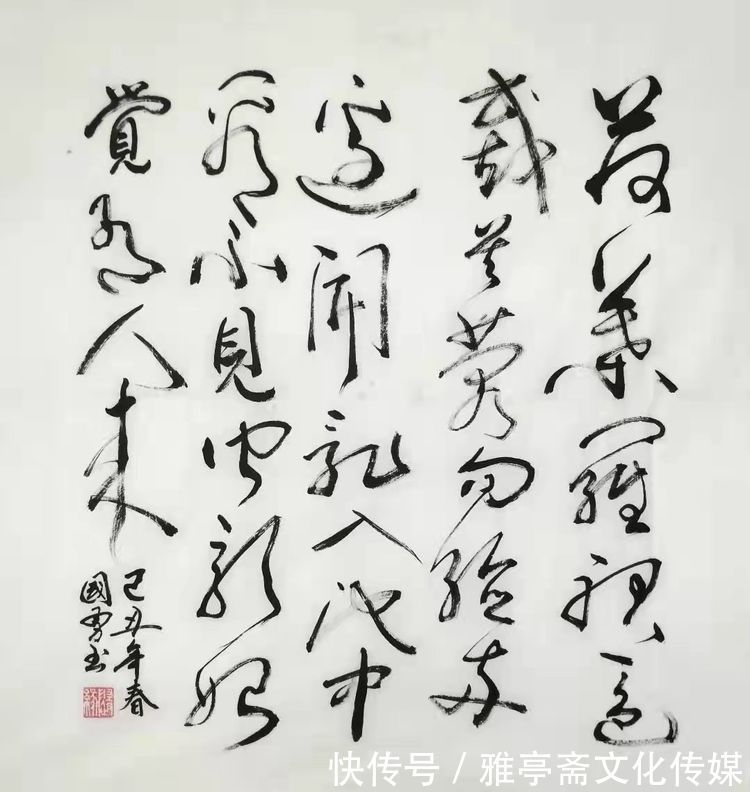 荷葉羅裙一色
裁芙蓉向臉兩
邊開亂入池中
看不見聞歌始
覺有人來
己丑年春
國勇书
快传号 / 雅亭斋文化传媒